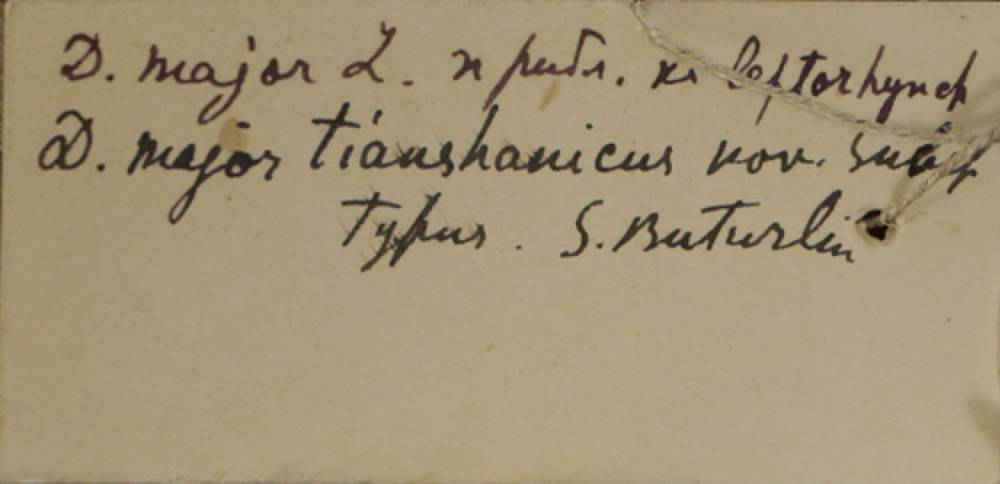 D. major L. приδл. к leptorhynch
D. major tianshanicus nov. subsp
Typus. S. Buturlin